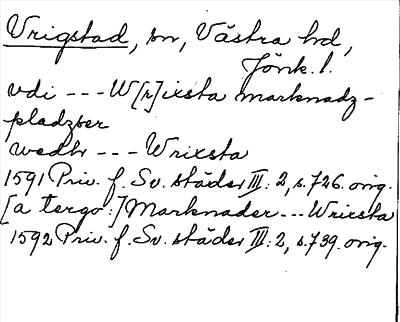 Vrigstad, sn, Västra hd,
Jönk. l.
vdi --- W[r]ixsta marknadz-
pladzser
wedh --- Wrixsta
1591 Priv. f. Sv. städer III: 2, s. 726. orig.
[a tergo:] Marknader --- Wrixsta
1592 Priv. f. Sv. städer III: 2, s. 739. orig.